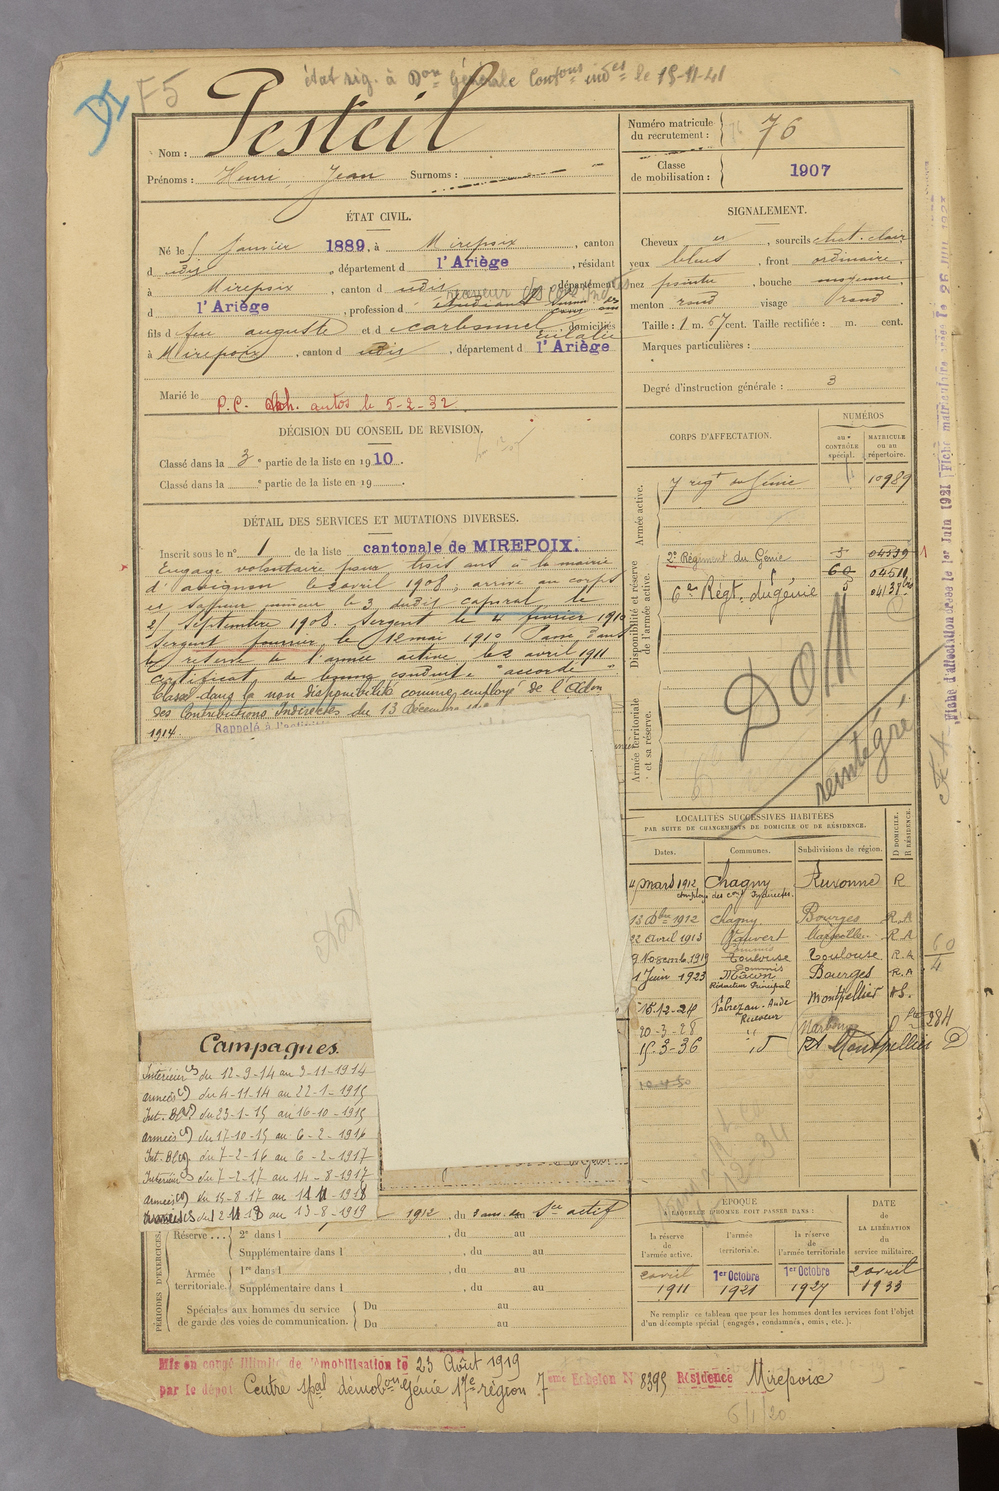 état sig. à Don Générale Contons indes le 15-11-41
F5
Nom : Pesteil
Prénoms : Henri, Jean Surnoms :
Numéro matricule du recrutement : 76
Classe de mobilisation : 1907
ÉTAT CIVIL.
Né le 5 Janvier 1889, à Mirepoix, canton
d udis, département d l'Ariège, résidant
à Mirepoix, canton d udis, département
d l'Ariège, profession d receveur des Cons Indtes
fils d feu auguste et d Carbonnel Eulalie, domiciliés
à Mirepoix, canton d udis, département d l'Ariège
Marié le
P.C. autos le 5-2-32
SIGNALEMENT.
Cheveux , sourcils chat. clair
yeux bleus, front ordinaire
nez pointu, bouche moyenne
menton rond visage rond
Taille : 1 m. 67 cent. Taille rectifiée : m. cent.
Marques particulières :
Degré d'instruction générale : 3
DÉCISION DU CONSEIL DE REVISION.
Classé dans la 3e partie de la liste en 1910.
Classé dans la e partie de la liste en 19 .
DÉTAIL DES SERVICES ET MUTATIONS DIVERSES.
Inscrit sous le n° 1 de la liste cantonale de MIREPOIX.
Engagé volontaire pour trois ans à la mairie
d'avignon le 2 avril 1908, arrivé au corps
et sapeur mineur le 3 dudit caporal le
25 Septembre 1908. Sergent le 4 février 1910
Sergent fourrier le 12 mai 1910 Passé dans
la réserve de l'armée active le 2 avril 1911
Certificat de bonne conduite "accordé"
Classé dans la non disponibilité comme employé de l'Adon
des Contributions Indirectes du 13 Décembre
1914.
Rappelé à l'activité
CORPS D'AFFECTATION.
NUMÉROS
au CONTRÔLE spécial.
MATRICULE ou au répertoire.
Armée active.
7 regt du Génie 10989
Disponibilité et réserve de l'armée active.
2e Régiment du Génie 5 04539
60 04511
6e Régt. du génie 5 04137
Armée territoriale et sa réserve.
DOM
réintégré
Fiche d'affectation dressée le 1er Juin 1921
LOCALITÉS SUCCESSIVES HABITÉES
PAR SUITE DE CHANGEMENTS DE DOMICILE OU DE RÉSIDENCE.
Dates. Communes. Subdivisions de région. D DOMICILE. R RÉSIDENCE.
4 Mars 1912 Chagny Auxonne R
employé des cons Indirectes.
13 Dbre 1912 Chagny Bourges R.A
22 Avril 1913 Vauvert Marseille R.A
9 Novemb. 1919 Commis Toulouse Toulouse R.A
1 Juin 1923 Commis Macon Bourges R.A
Rédacteur Principal
15-12-24 Fabrezan-Aude Montpellier
Receveur
20-3-28 " Narbonne
15-3-36 id Montpellier D
284
60
4
Campagnes.
Intérieur du 12-9-14 au 3-11-1914
armées du 4-11-14 au 22-1-1915
Int. Bl du 23-1-15 au 16-10-1915
armées du 17-10-15 au 6-2-1916
Int. Bl du 7-2-16 au 6-2-1917
Intérieur du 7-2-17 au 14-8-1917
armées du 15-8-17 au 11-11-1918
armées du 12 11 18 au 13-8-1919
PÉRIODES D'EXERCICES.
1912, du
Sce actif
Réserve ... 2e dans l , du au
Supplémentaire dans l , du au
Armée territoriale. 1re dans l , du au
Supplémentaire dans l , du au
Spéciales aux hommes du service de garde des voies de communication. Du au
Du au
ÉPOQUE
A LAQUELLE L'HOMME DOIT PASSER DANS :
la réserve de l'armée active. l'armée territoriale. la réserve de l'armée territoriale
DATE de LA LIBÉRATION du service militaire.
2 avril 1911 1er Octobre 1921 1er Octobre 1927 2 avril 1933
Ne remplir ce tableau que pour les hommes dont les services font l'objet
d'un décompte spécial (engagés, condamnés, omis, etc.).
Mis en congé illimité de démobilisation le 23 Août 1919
par le dépôt Centre spal démobon Génie 17e région 7eme Echelon N° 8395 Résidence Mirepoix
6/1/20